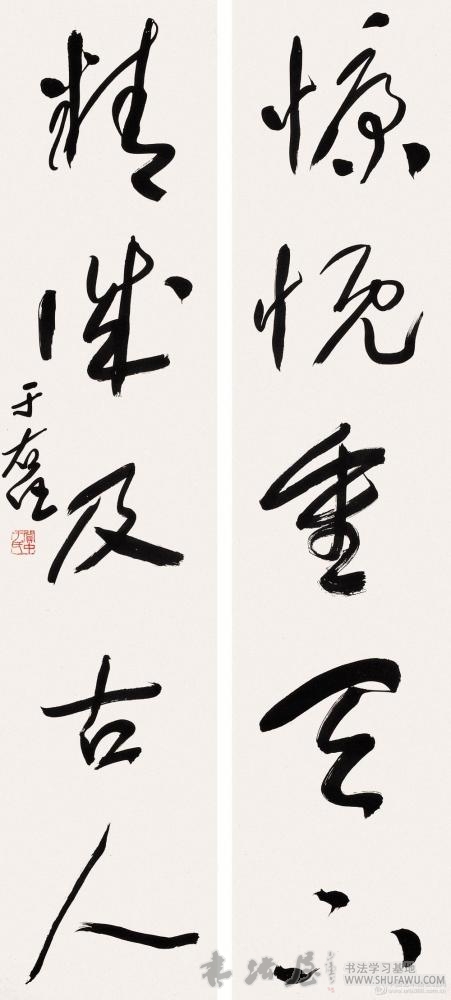 慷慨重天下
精诚及古人
于右任
關中于氏
书法屋
书法学习基地
WWW.SHUFAWU.COM